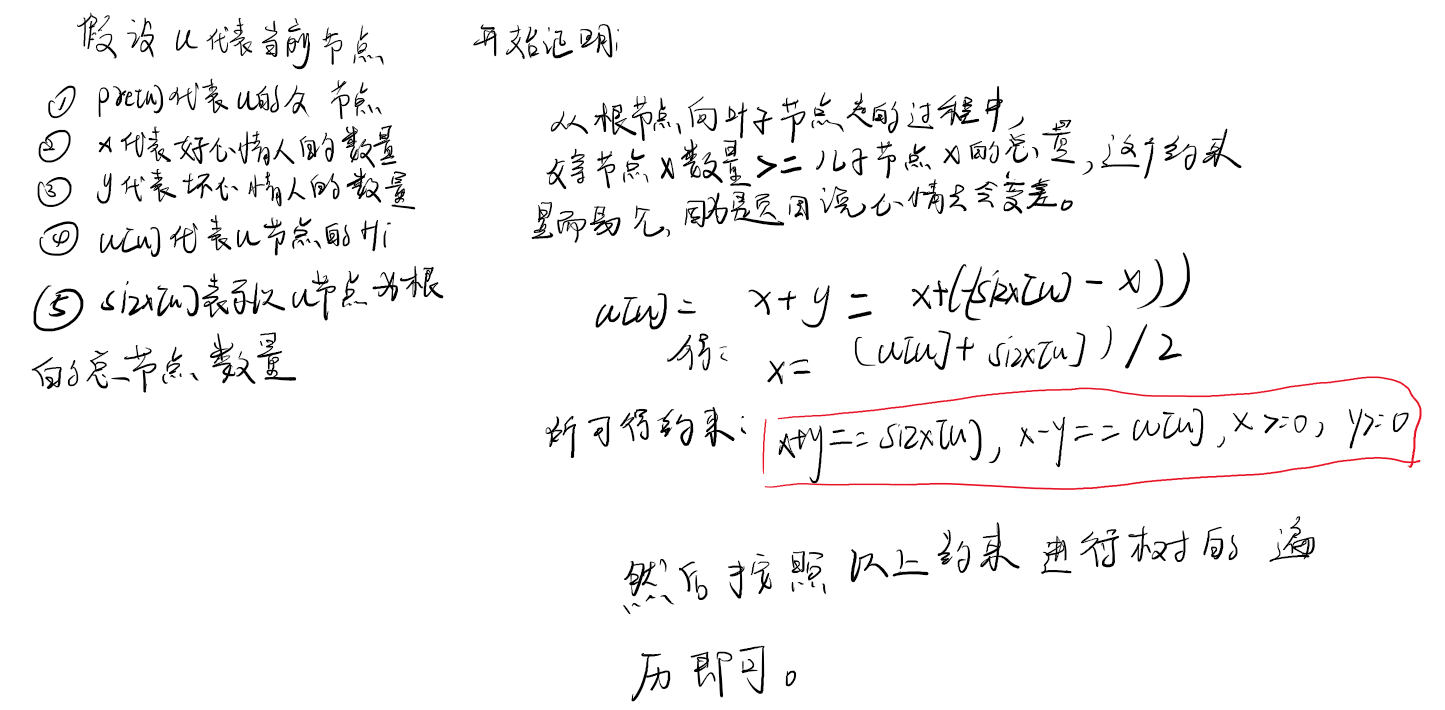 假设 u 代表当前节点
① pre[u]代表u的父节点
② x代表好心情人的数量
③ y代表坏心情人的数量
④ w[u]代表u节点的Hi
⑤ sizx[u]表示以u节点为根
的总节点数量
开始证明:
从根节点向叶子节点走的过程中,
父亲节点x数量>=儿子节点x的总量,这个约束
显而易见,因为是题目说心情会变差。
w[u] = x + y = x+(-(sizx[u] - x))
得: x = (w[u] + sizx[u]) / 2
所可得约束: x+y == sizx[u], x-y == w[u], x>=0, y>=0
然后按照以上约束进行树的遍
历即可。